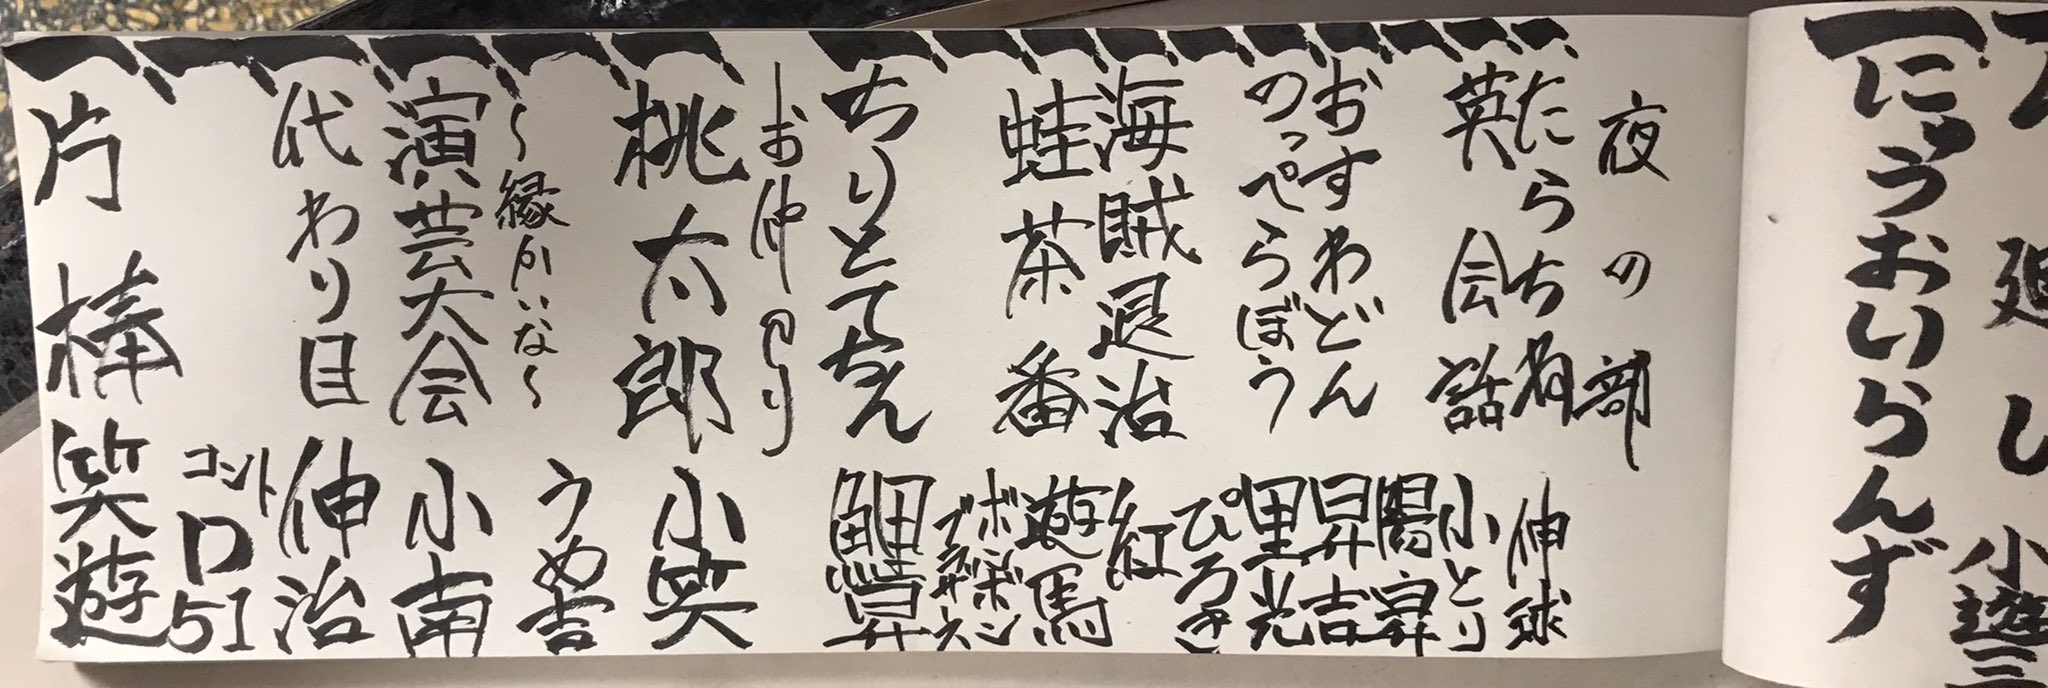 廻し 小遊三
にゅうおいらんず
夜の部
たらちね 伸球
英会話 小とり
陽昇
おすわどん 昇吉
のっぺらぼう 里光
ぴろき
海賊退治 紅
蛙茶番 遊馬
ボンボン
ブラザース
ちりとてちん 鯉昇
―お仲入り
桃太郎 小笑
～縁かいな～ うめ吉
演芸大会 小南
代わり目 伸治
コント
D51
片棒 笑遊